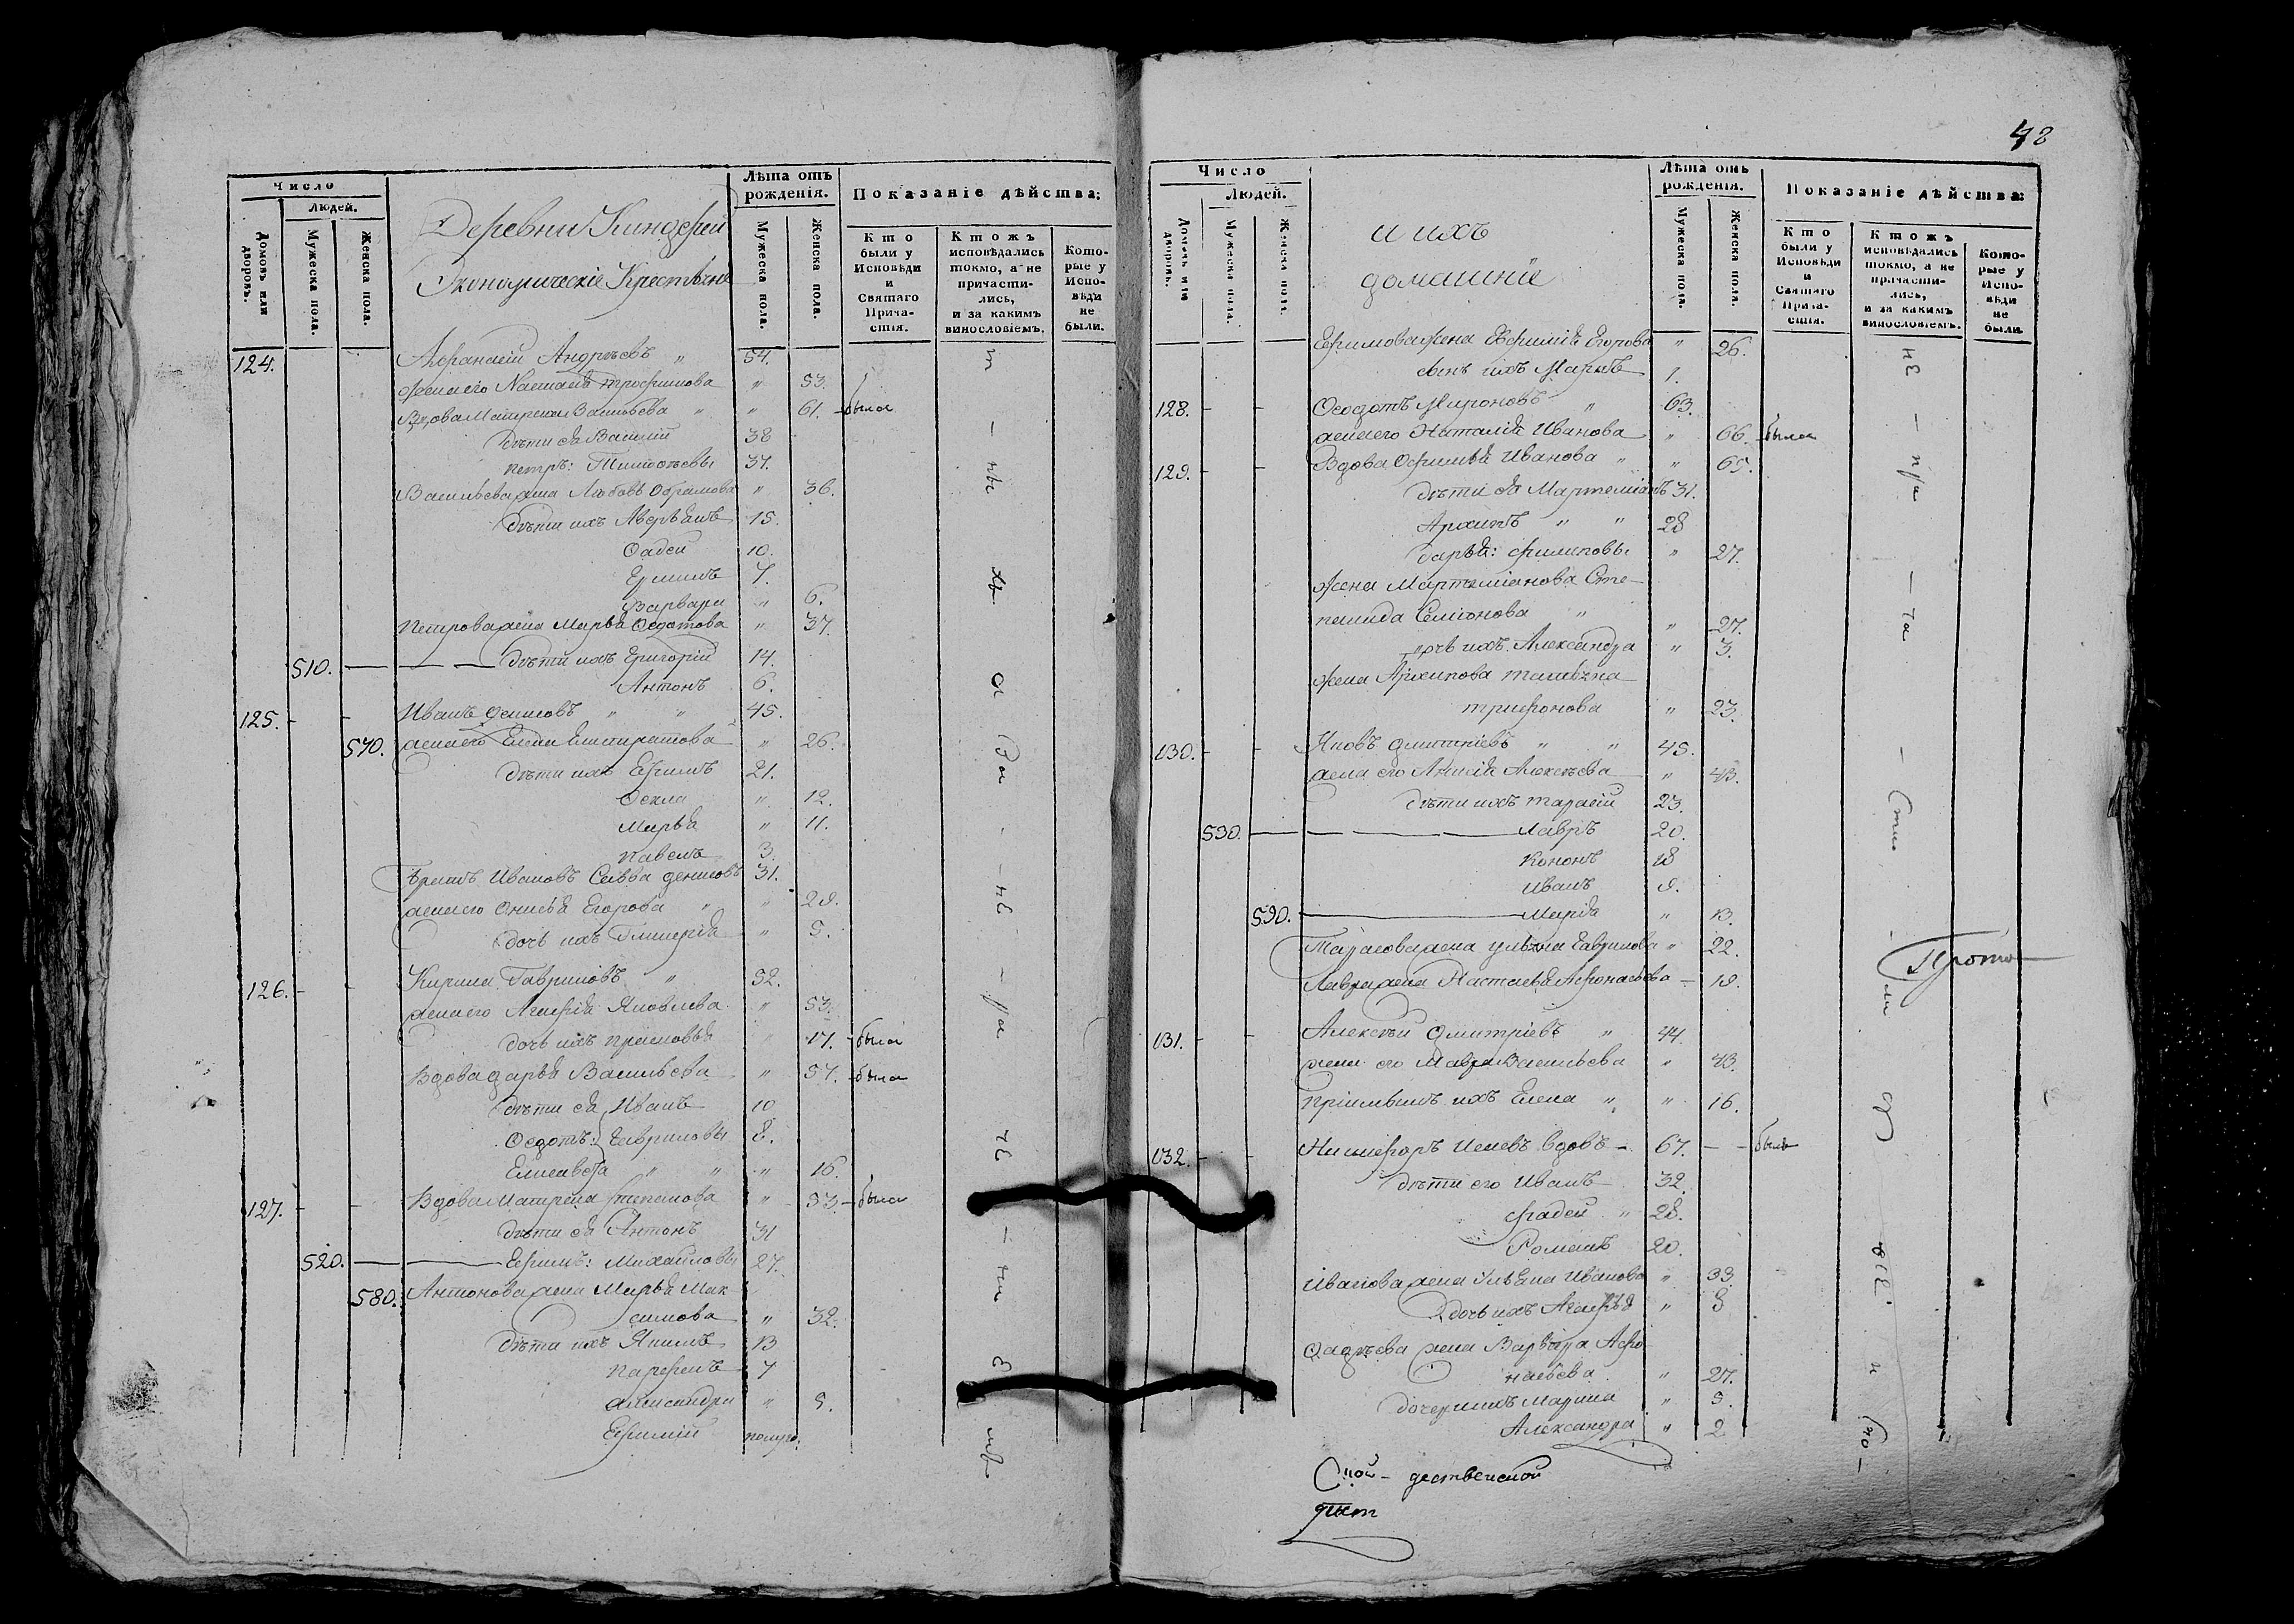 48
Число
Людей.
Домовъ или дворовъ.
Мужеска пола.
Женска пола.
Деревни Киндерей
Экономическіе Крестьяне
Лѣта отъ рожденія.
Мужеска пола.
Женска пола.
Показаніе дѣйства:
Кто были у Исповѣди и Святаго Причастія.
Ктожъ исповѣдались токмо, а не причастились, и за какимъ винословіемъ.
Которые у Исповѣди не были.
124. Афанасій Андрѣевъ " 54.
жена его Настасья трофимова " 53.
Вдова Матрена Васильева " " 61. была
дѣти ея Василій 38
петръ: Тимофѣевы 37.
Васильева жена Любовь Обрамова " 36.
дѣти ихъ Аверьянъ 15.
Фадей 10.
Ермилъ 7.
Варвара " 6.
петрова жена Марья Федотова " 37.
510. дѣти ихъ Григорій 14.
Антонъ 6.
125. Иванъ денисовъ " " 45.
570. жена его Елена " 26.
дѣти ихъ Ефимъ 21.
Фекла " 12.
Марья " 11.
павелъ 3.
братъ Ивановъ Савва денисовъ 31.
жена его Онисья Егорова " " 29.
дочь ихъ Гликерія " 5.
126. Кирила Гавриловъ " 52.
жена его Агафія Яковлева " 53.
дочь ихъ прасковья " 17. была
Вдова дарья Васильева " 57. была
дѣти ея Иванъ 10
Федотъ: Гавриловы 8.
Елисавета " " " 16.
127. Вдова Матрена Степанова " 53. была
дѣти ея Антонъ 31
520. Ефимъ: Михайловы 27.
580. Антонова жена Марья Мак-
симова " 32.
дѣти ихъ Якимъ 13
парфенъ 7
александра " 9.
Ефимій полуго.
Число
Людей.
Домовъ или дворовъ.
Мужеска пола.
Женска пола.
и ихъ
домашніе
Лѣта отъ рожденія.
Мужеска пола.
Женска пола.
Показаніе дѣйства:
Кто были у Исповѣди и Святаго Причастія.
Ктожъ исповѣдались токмо, а не причастились, и за какимъ винословіемъ.
Которые у Исповѣди не были
Ефимова жена Ефимія Егорова " 26.
сынъ ихъ 1.
128. Феодотъ Мироновъ " 63.
жена его Наталія Иванова " 66. была
129. Вдова Офимья Иванова " " 65.
дѣти ея Мартеміанъ 31.
Архипъ " " 28
дарья: филиповы " 27.
жена Мартеміанова Сте-
панида Семіонова " " 27.
дочь ихъ Александра " 3.
жена Архипова татьяна
трифонова " 23.
130. Яковъ дмитріевъ " " 45.
жена его Анисія Алексѣева " 43.
дѣти ихъ тарасій 23.
530. Лавръ 20.
кононъ 18
иванъ 9.
590. Марія " 13.
Тарасова жена ульяна Гаврилова " 22.
Лавра жена Настасья Афонасьева 19.
131. Алексѣй дмитріевъ " 44.
жена его Мавра Васильева " 43.
пріимышъ ихъ Елена " " 16.
132. Никифоръ вдовъ 67. былъ
дѣти его Иванъ 32.
фадей " 28.
Романъ 20.
Иванова жена Ульяна Иванова " 33.
дочь ихъ " 8
Фадѣева жена Варвара Афо-
насьева " 27.
дочери ихъ Марина " 5.
Александра " 2
Прото